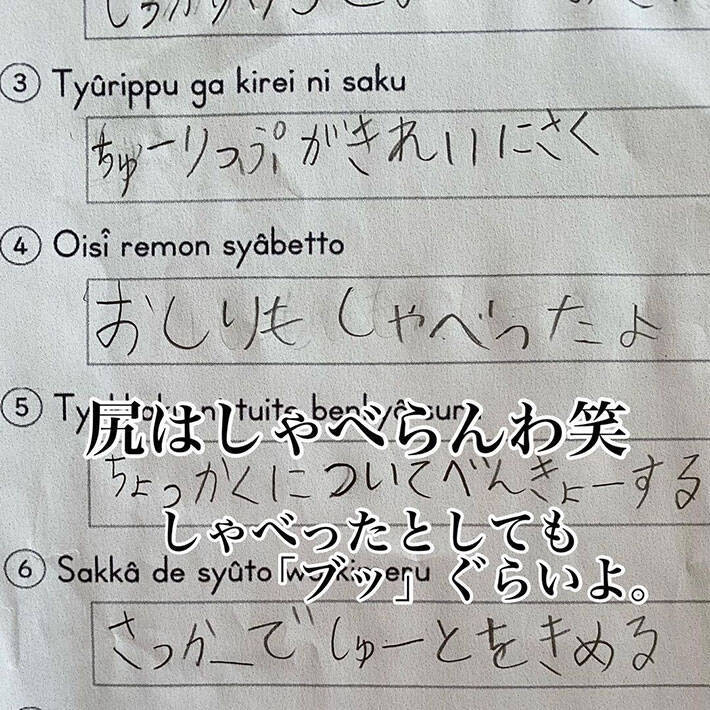 ③ Tyûrippu ga kirei ni saku
ちゅーりっぷがきれいにさく
④ Oisî remon syâbetto
おしりもしゃべったよ
⑤ Tyokkaku ni tuite benkyô suru
尻はしゃべらんわ笑
ちょっかくについてべんきょーする
しゃべったとしても
⑥ Sakkâ de syûto wo kimeru
「ブッ」ぐらいよ。
さっかーでしゅーとをきめる